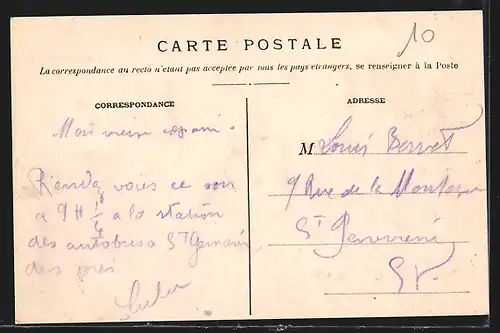 10
CARTE POSTALE
La correspondance au recto n'étant pas acceptée par tous les pays étrangers, se renseigner à la Poste
CORRESPONDANCE
Mon vieux copain.
Rendez vous ce soir
a 9H 1/4 a la station
des autobus a St Germain
des prés
ADRESSE
M Louis
9 Rue de la
St